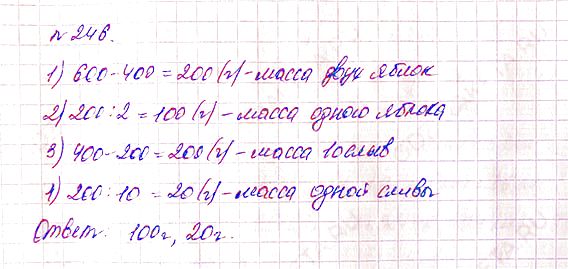 № 246.
1) 600-400 = 200 (г) - масса двух яблок
2) 200 : 2 = 100 (г) - масса одного яблока
3) 400-200 = 200 (г) - масса 10 слив
4) 200 : 10 = 20 (г) - масса одной сливы
Ответ: 100г, 20г.